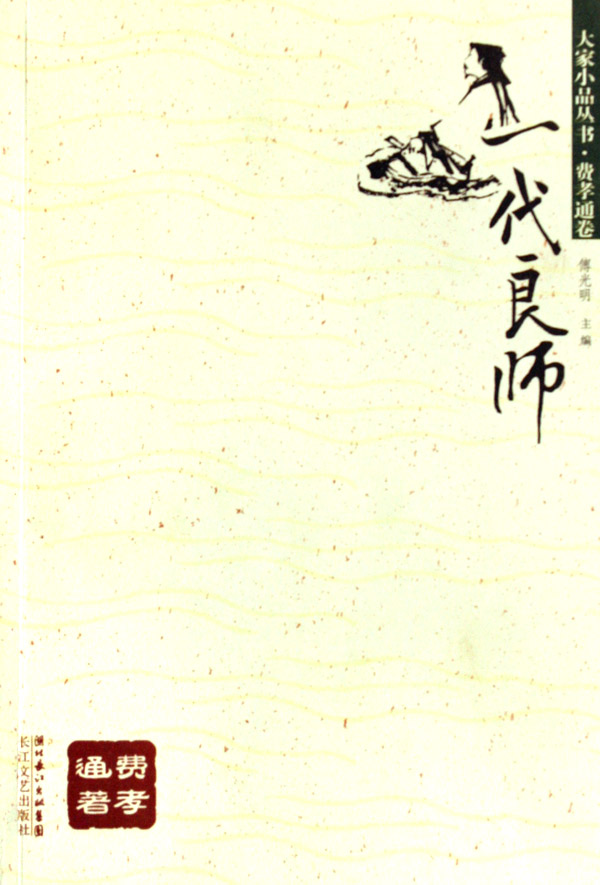 大家小品丛书·费孝通卷
傅光明 主编
一代良师
费孝
通著
湖北长江出版集团
长江文艺出版社